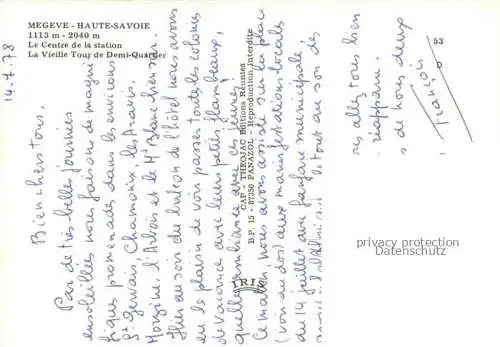 MEGEVE - HAUTE-SAVOIE
1113 m - 2040 m
Le Centre de la station
La Vieille Tour de Demi-Quartier
14.7.78
Bien chers tous,
Par de très belles journées
ensoleillées nous faisons de magni
fiques promenades dans les environs
St Gervais, Chamonix, les Aravis,
Morzine, l'Arbois et le Mt Blanc bien sûr.
Hier au soir du balcon de l'hôtel nous avons
eu le plaisir de voir passer toutes les colonies
de vacances avec leurs petits flambeaux,
quelle ambiance avec ces jeunes,
Ce matin, nous avons assisté sur la place
(voir au dos) aux manifestations locales
du 14 juillet avec fanfare municipale,
et tout au son des
CAP - THEOJAC Editions Réunies
B.P. 15 - 87350 PANAZOL - Reproduction interdite
IRIS
allez tous bien
réapparu.
de nous deux
François
privacy protection
Datenschutz